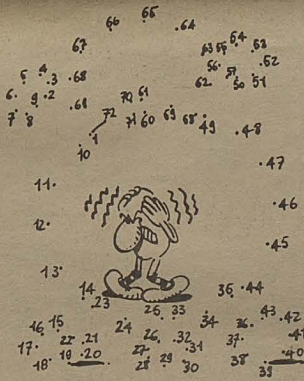 66 65 .64
67 63 55 54 53
5 4 3 .68 56 52
6. 9 .2 .69 62 57 50 51
7 8 70 61
72 71 60 69 68 49 .48
1
10 .47
11. .46
12. .45
13.
14 36 .44
.23 25 33 43 .42
16 15 24 34 36. 41
17. 22 .21 26 .32 37. .40
18. 19 .20 27 .31 38
28 29 30 39